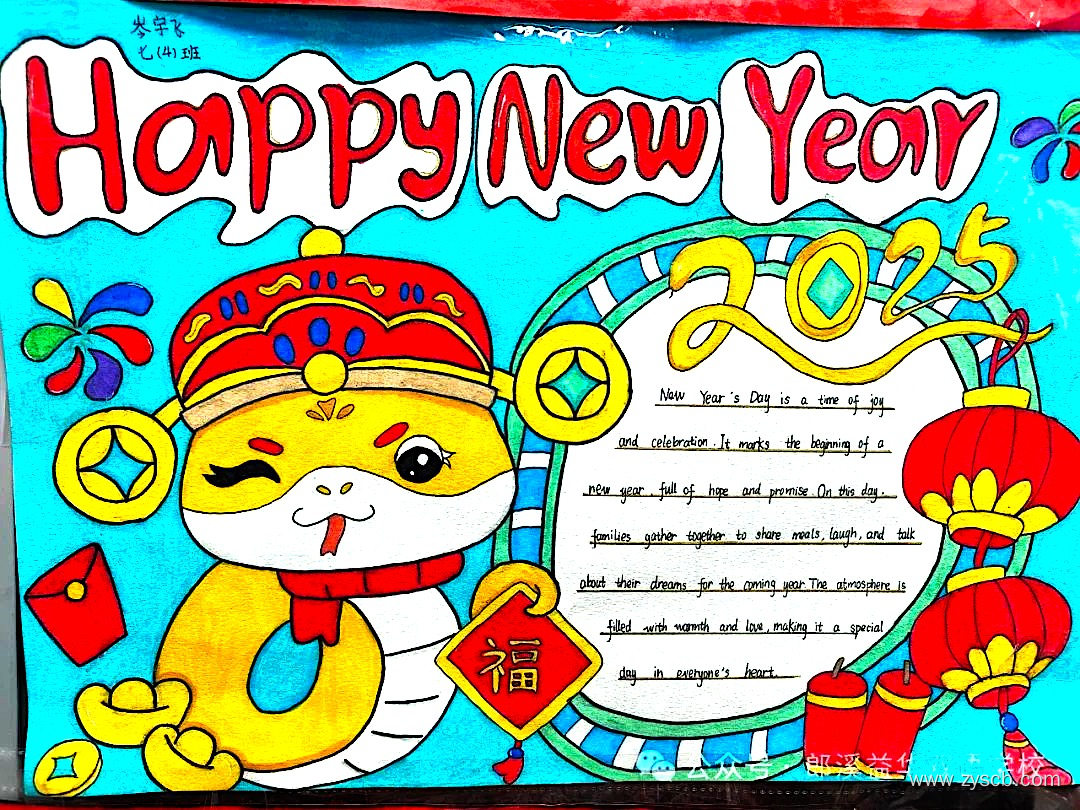 岑宇飞
七(4)班
Happy New Year
2025
New Year's Day is a time of joy
and celebration. It marks the beginning of a
new year, full of hope and promise. On this day,
families gather together to share meals, laugh, and talk
about their dreams for the coming year. The atmosphere is
filled with warmth and love, making it a special
day in everyone's heart.
福
公众号 郎溪益华 学校
www.zyscb.com